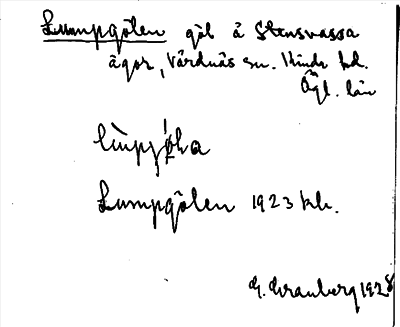 Lumpgölen göl å Stensvassa
ägor, Vårdnäs sn. Kinds hd.
Ögl. län
Lumpgölen 1923 kk.
G. Granberg 1928